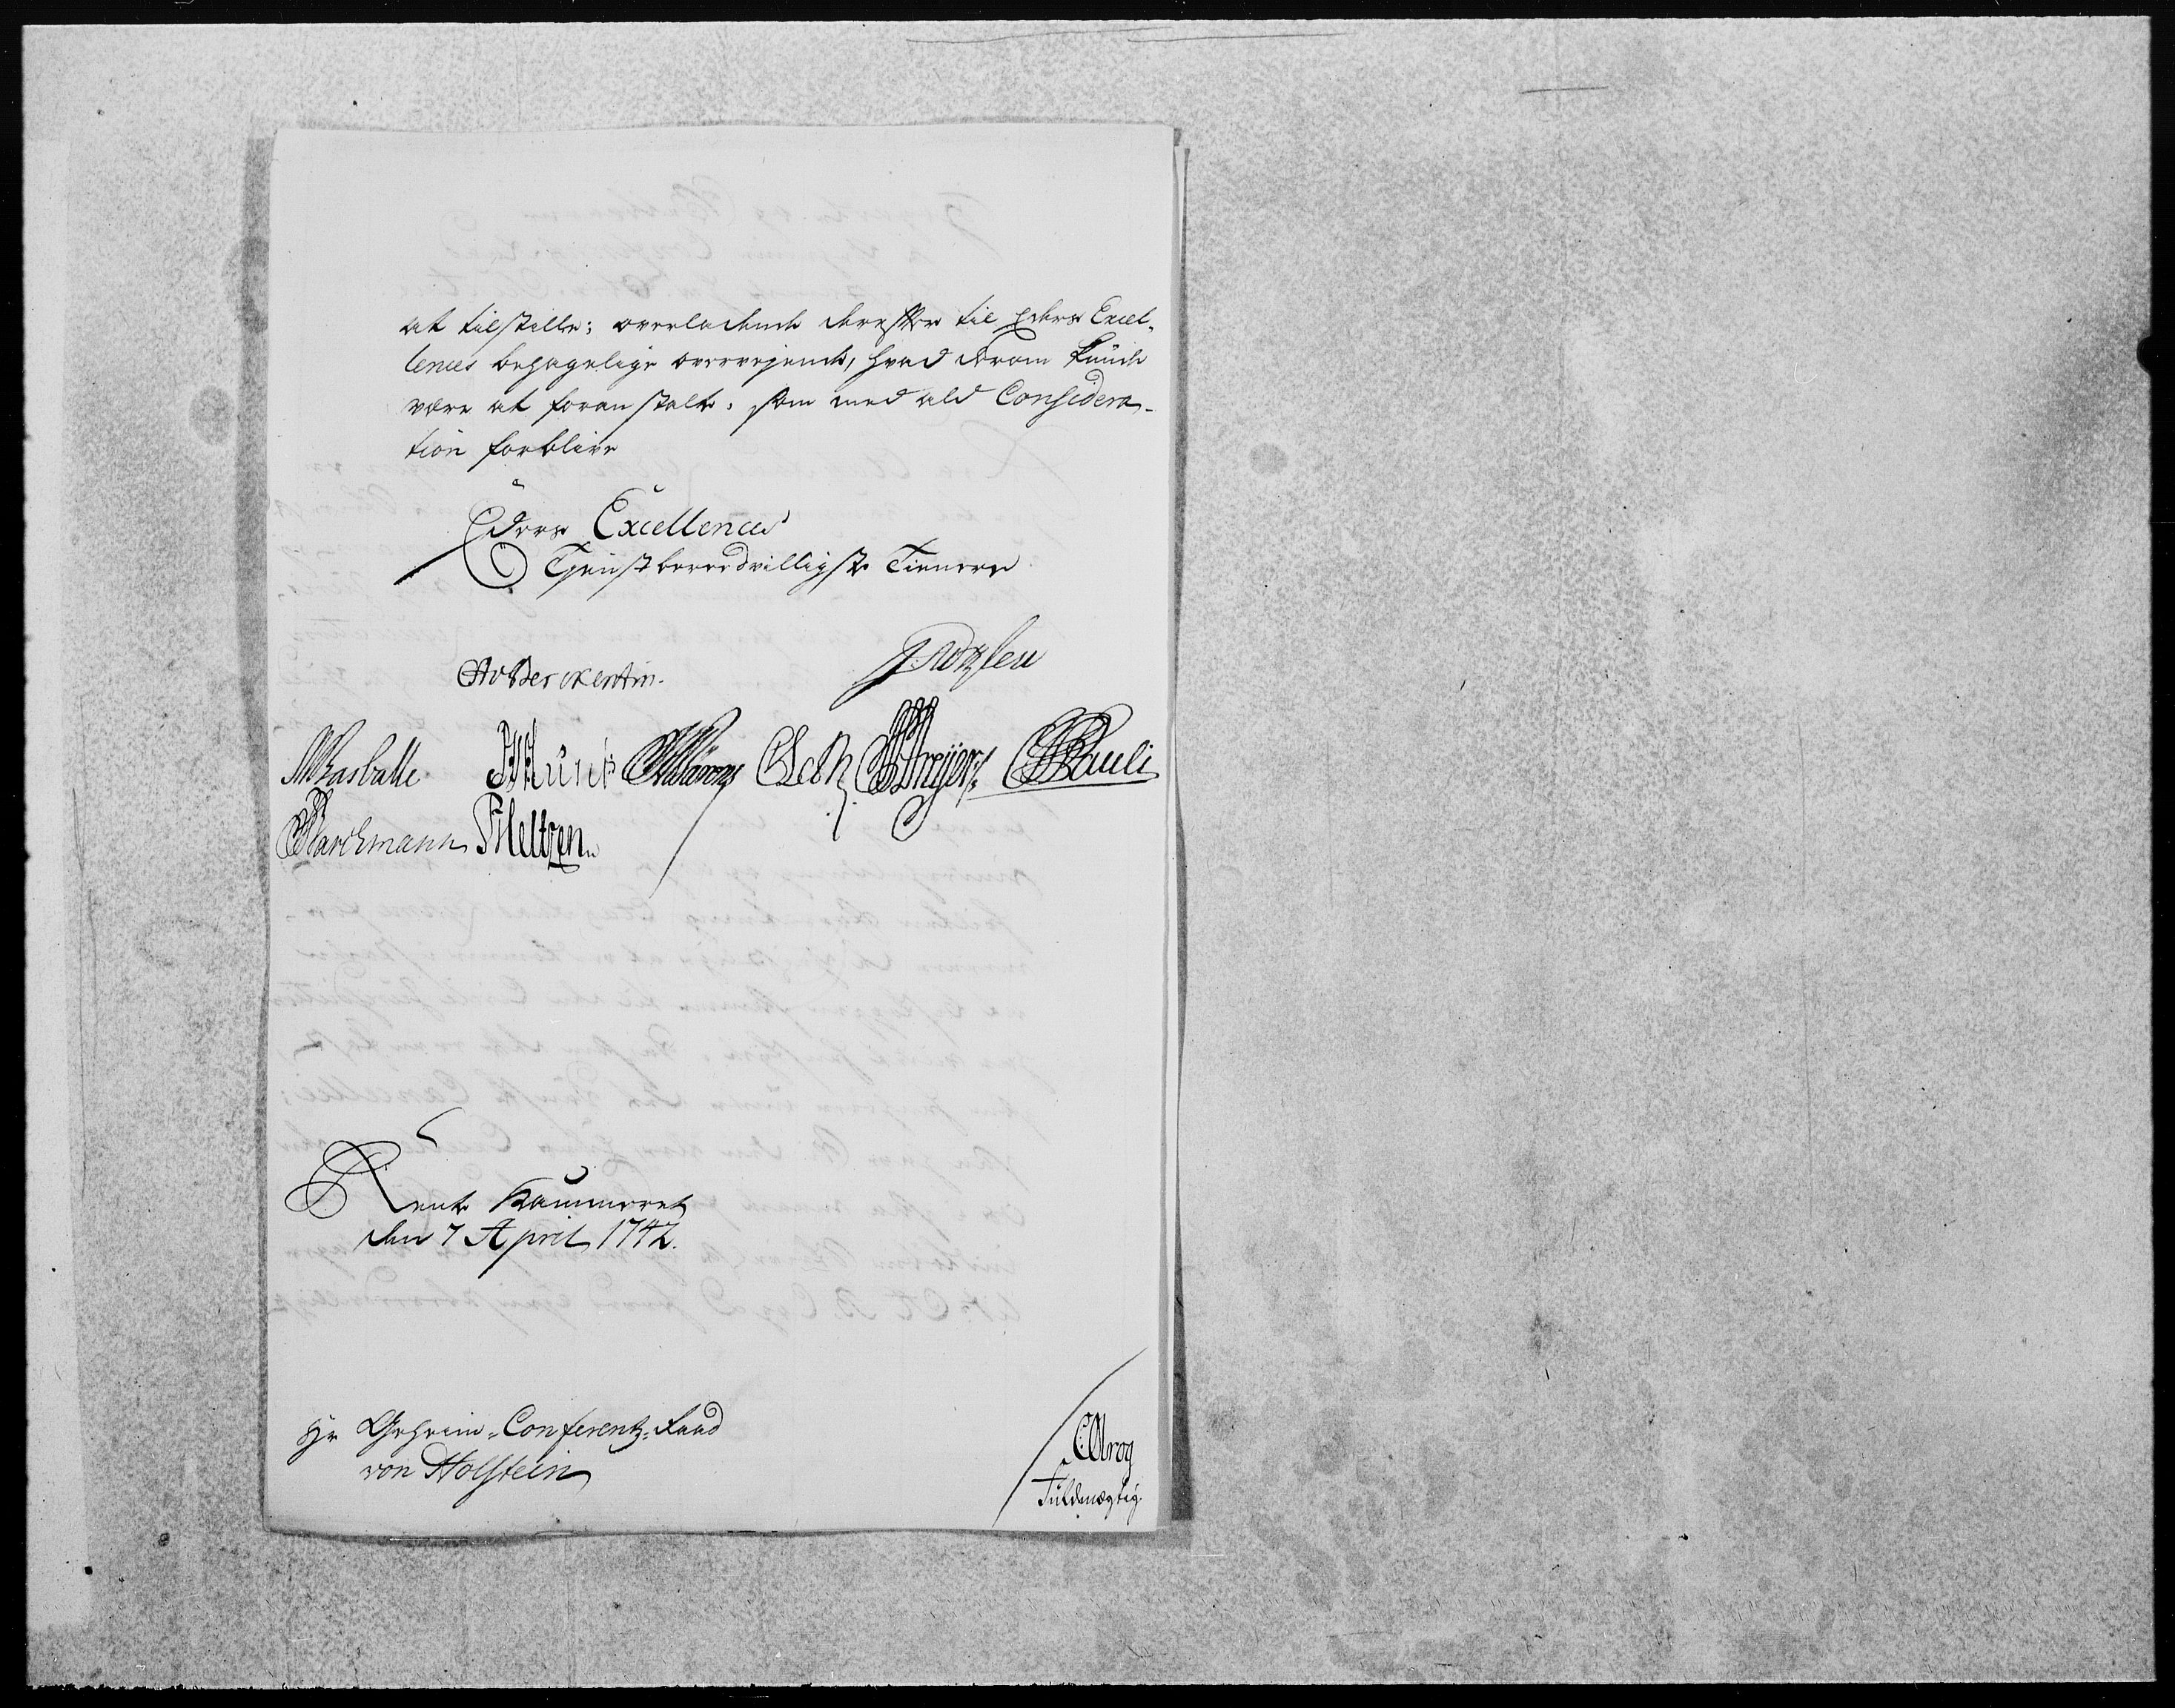 at tilstille; overladende derefter til Eders Excel-
lences behagelige overvejende, hvad derom kunde
være at foranstalte, som med ald Considera-
tion forblive
Eders Excellences
Tjenstberedvilligste Tienere
AvBerckentin.
MBasballe JMunk CSeth CPauli
Barchmann PHeltzen.
Rente Kammeret
den 7 April 1742.
Hr Geheim-Conferentz-Raad
von Holstein
Krog
Fuldmægtig.